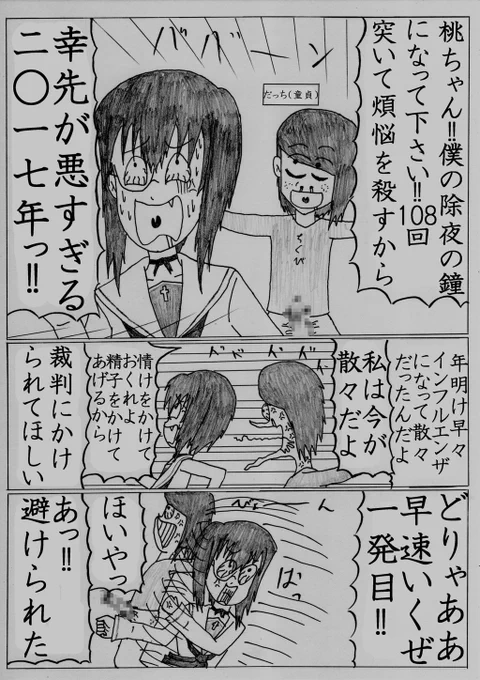 桃ちゃん!!僕の除夜の鐘
になって下さい!!108回
突いて煩悩を殺すから
ババーン
だっち(童貞)
ちくび
幸先が悪すぎる
二〇一七年っ!!
年明け早々
インフルエンザ
になって散々
だったんだよ
私は今が
散々だよ
情けをかけて
おくれよ
精子をかけて
あげるから
裁判にかけ
られてほしい
どりゃああ
早速いくぜ
一発目!!
ほいやっ
あっ!!
避けられた